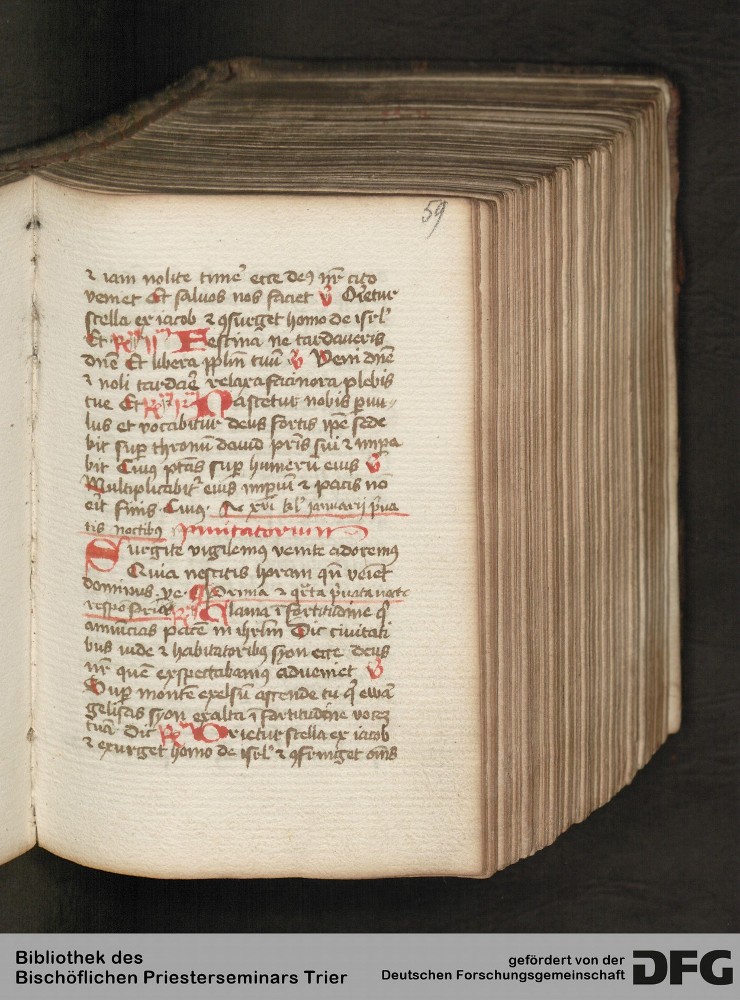 59
⁊ iam nolite timeˀ ecce deꝰ nr̄ cito
veniet Et saluos nos faciet ℣ Orietur
stella ex iacob ⁊ ꝯsurget homo de isrl'
Et R᷒ ij Festina ne tardaveris
dn̄e Et libera pplm̄ tuū ℣ Veni dn̄e
⁊ noli tardare relaxa facinora plebis
tue Et R᷒ Nascetur nobis paruu-
lus et vocabitur deus fortis ip̄e sede
bit sup̱ thronū dauid pr̄is sui ⁊ imp̱a
bit Cuius ptās sup̱ humerū eius ℣
Multiplicabitᷣ eius imp̱iū ⁊ pacis nō
erit finis. Cuiuꝰ. A xvi kl' januarij p̱ua
tis noctibꝰ Jnuitatorium
Surgite vigilemuꝰ venite adoremuꝰ
Quia nescitis horam qn̄ veiet
dominus. ve. Prima ⁊ q̈rta p̱uata nocte
respōsorioꝝ R᷒ Clama ī fortitudine q̇
annūcias pacē in ihrlm̄ Dic ciuitati
bus iude ⁊ habitatoribꝰ syon ecce deus
nr̄ quē exspectabamuꝰ adueniet ℣
Sup̱ montē exelsū ascende tu q̇ ewā
gelisas syon exalta ī fortitudine vocez
tuā Dic R᷒ Orietur stella ex iacob
⁊ exurget homo de isrl' ⁊ ꝯfringet om̄s
Bibliothek des
Bischöflichen Priesterseminars Trier
gefördert von der
Deutschen Forschungsgemeinschaft
DFG